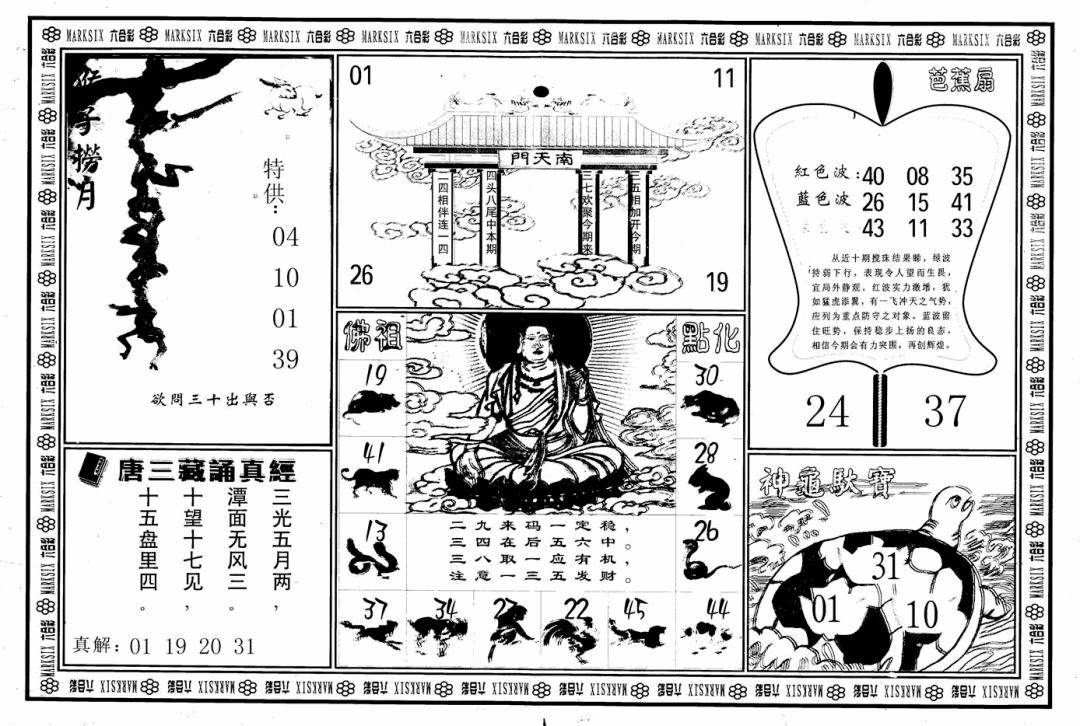 MARKSIX 六合彩 MARKSIX 六合彩 MARKSIX 六合彩 MARKSIX 六合彩 MARKSIX 六合彩 MARKSIX 六合彩 MARKSIX 六合彩 MARKSIX 六合彩 MARKSIX 六合彩 MARKSIX 六合彩
猴子撈月
特供:
04
10
01
39
欲問三十出與否
唐三藏誦真經
三光五月两,
潭面无风三。
十望十七见,
十五盘里四。
真解: 01 19 20 31
01
11
南天門
二四相伴连一四
四头八尾中本期
三七欢聚今期来
三五相加开今期
26
19
佛祖
點化
19
30
41
28
13
26
二九来码一定稳,
三四在后五六中。
三八取一应有机,
注意一三五发财。
37
34
22
45
44
芭蕉扇
紅色波: 40 08 35
藍色波 26 15 41
43 11 33
从近十期搅珠结果睇,绿波
持弱下行,表现令人望而生畏,
宜局外静观。红波实力激增,犹
如猛虎添翼,有一飞冲天之气势,
应列为重点防守之对象。蓝波留
住旺势,保持稳步上扬的良态,
相信今期会有力突围,再创辉煌。
24
37
神龜馱寶
31
01
10